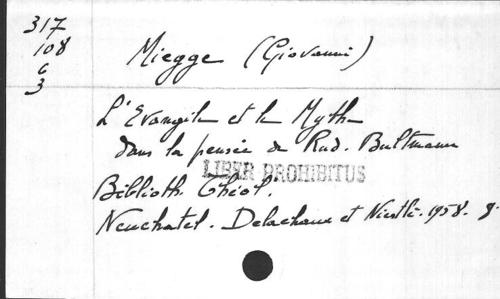 317
108
6
3
Miegge (Giovanni)
L'Evangile et le Mythe
dans la pensée de Rud. Bultmann
LIBER PROHIBITUS
Biblioth. Théol.
Neuchatel. Delachaux et Niestlé. 1958. 8.